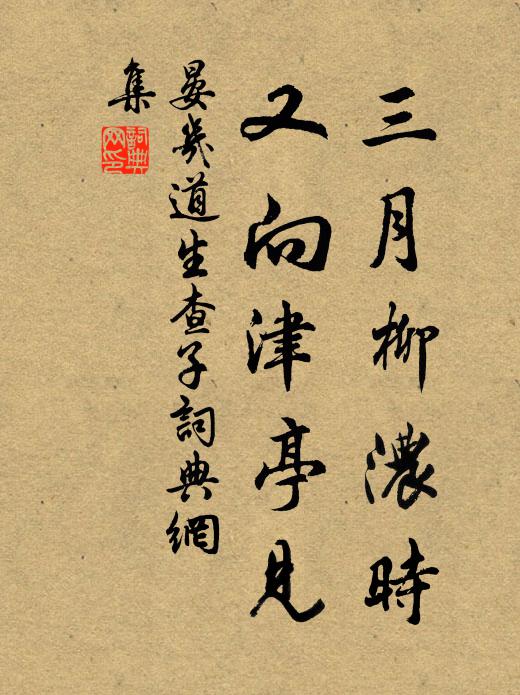 三月柳濃時
又向津亭見
晏幾道生查子詞典網
集
詞典
网印